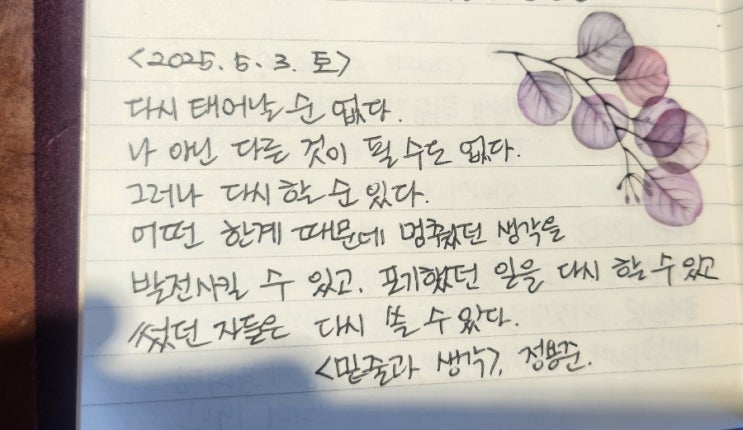 <2025. 5. 3. 토>
다시 태어날 순 없다.
나 아닌 다른 것이 될 수도 없다.
그러나 다시 할 순 있다.
어떤 한계 때문에 멈췄던 생각을
발전시킬 수 있고, 포기했던 일을 다시 할 수 있고
썼던 자들은 다시 쓸 수 있다.
<밑줄과 생각>, 정용준.